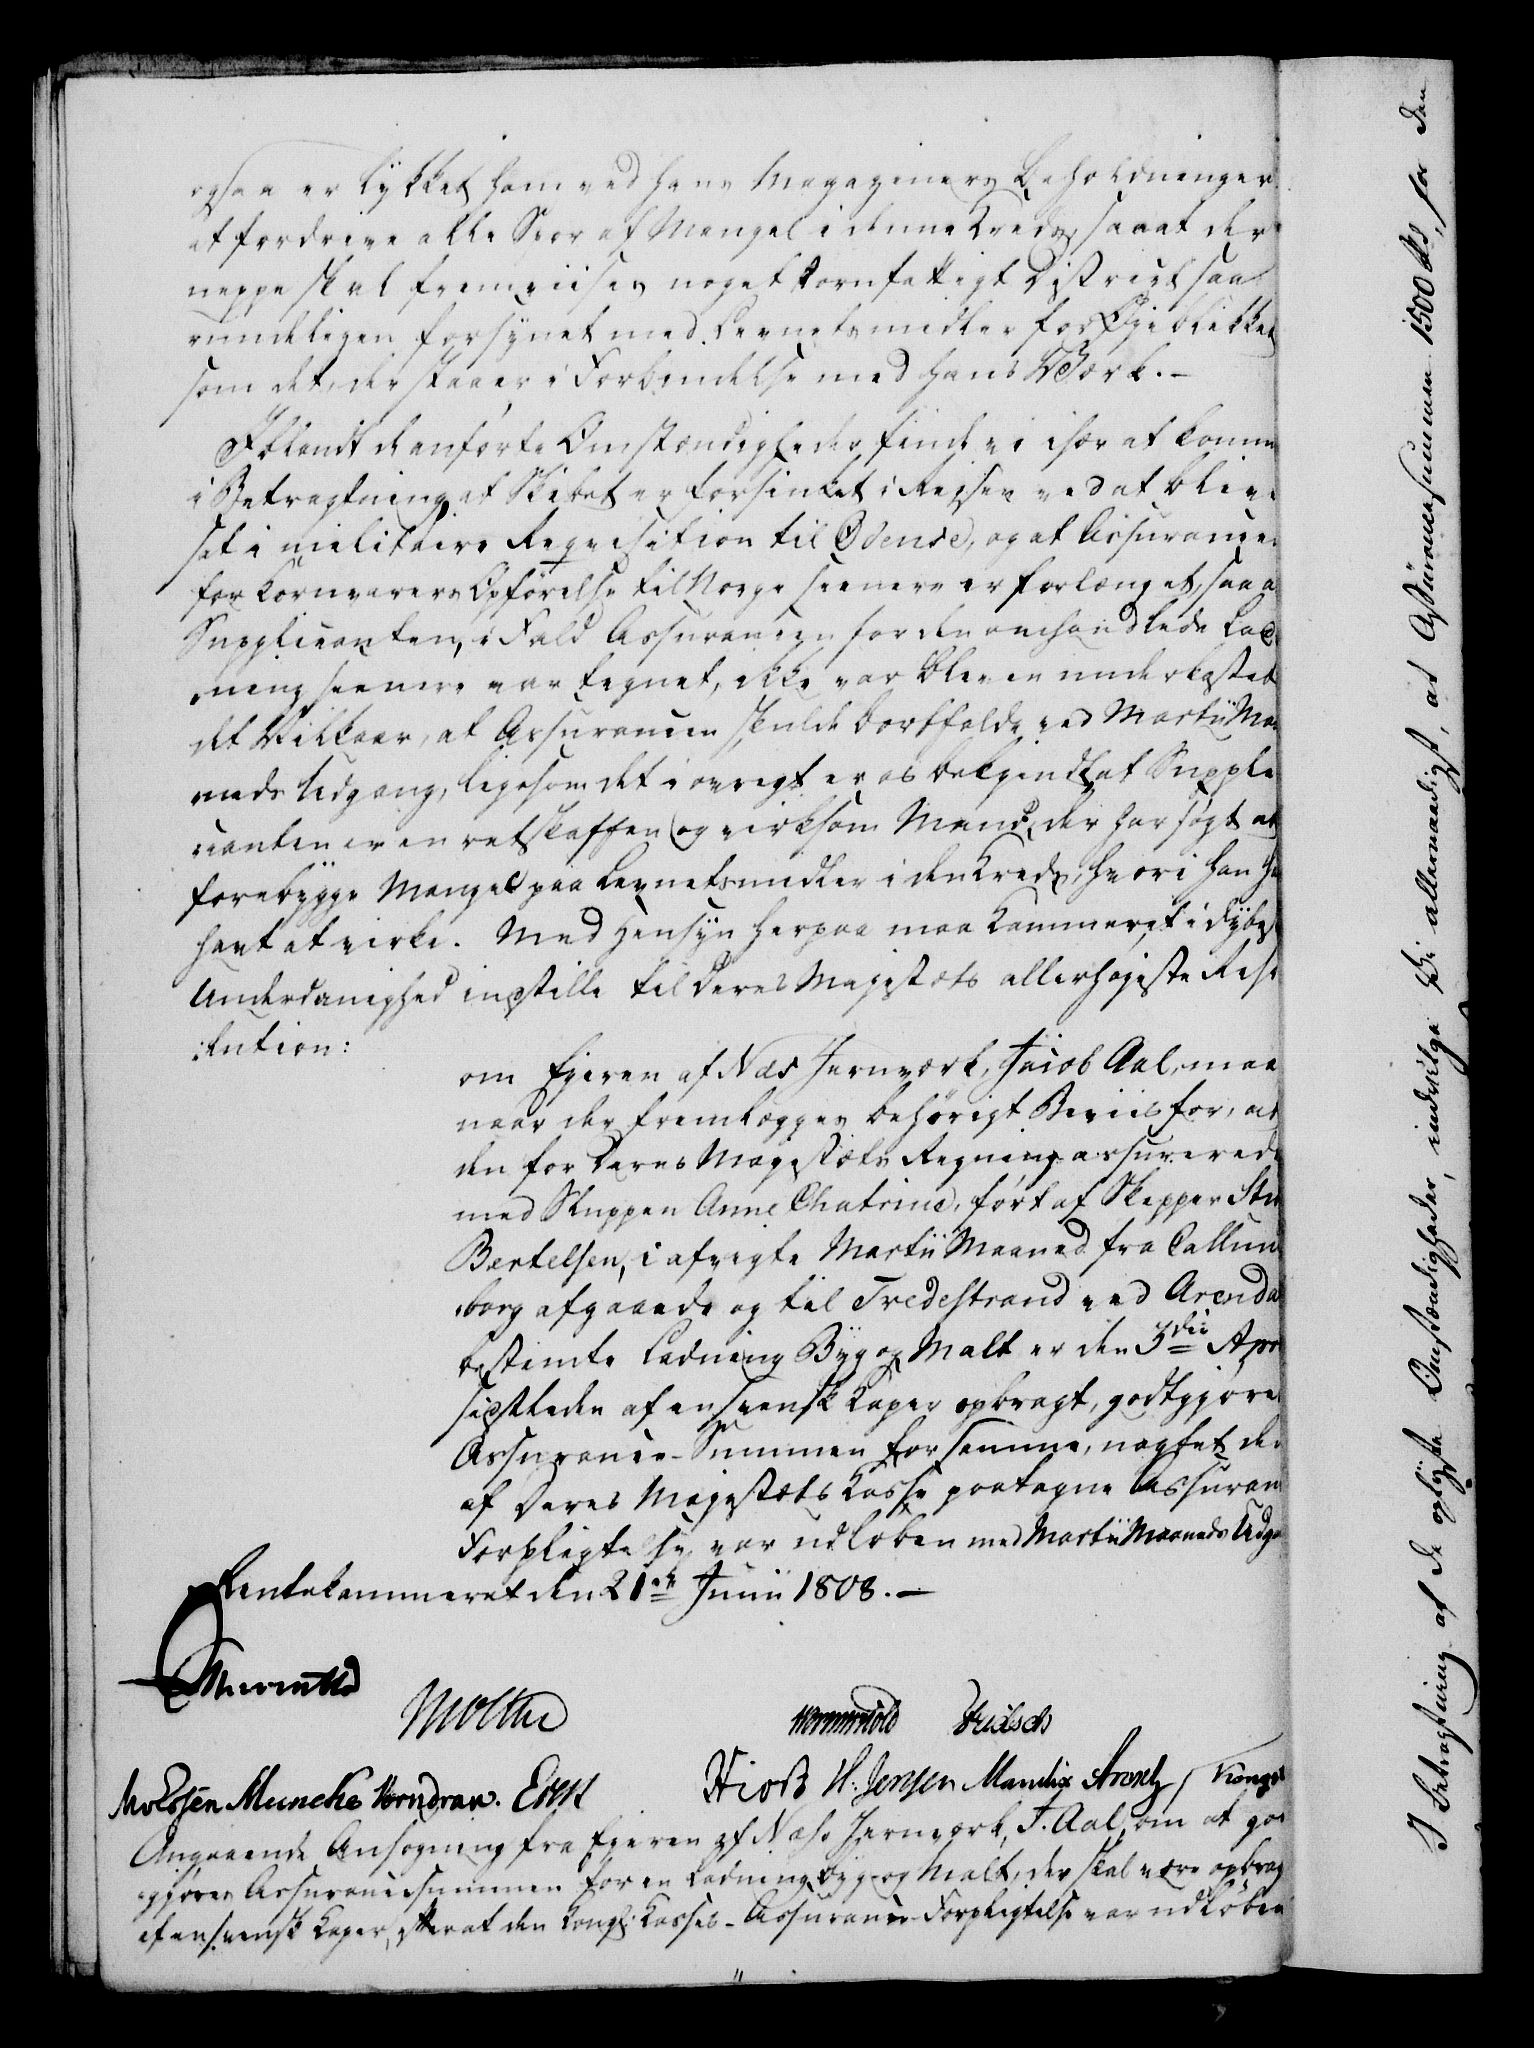 ogsaa er lykket ham ved hans Magaziners Beholdninger
at fordrive alle Spor af Mangel i denne Kreds, saaat der
neppe skal fremviises noget kornfattigt District saa
rundeligen forsynet med Levnetsmidler for Øjeblikket
som det, der staaer i Forbindelse med hans Værk. -
Iblandt de anførte Omstændigheder finde vi især at komme
i Betragtning, at Skibet er forsinket i Rejsen ved at blive
sat i militaire Reqvisition til Odense, og at Assurancen
for Kornvarers Opførelse til Norge seenere er forlænget, saa a
Supplicanten, i Fald Assurancen for den omhandlede Lad
ning seenere var tegnet, ikke var bleven underkastet
det Vilkaar, at Assurancen skulde bortfalde ved Martii Maa
neds Udgang, ligesom det i øvrigt er os bekjendt at Suppli
canten er en retskaffen og virksom Mand, der har søgt at
forebygge Mangel paa Levnetsmidler i den Kreds, hvori han ha
havt at virke. Med Hensyn herpaa maa Kammeret i dybes
Underdanighed indstille til Deres Majestæts allerhøjeste Reso
lution:
om Ejeren af Næs Jernværk, Jacob Aal, maa
naar der fremlægges behørigt Beviis for, at
den for Deres Majestæts Regning assurerede
med Sluppen Anne Chatrine, ført af Skipper
Bertelsen, i afvigte Martii Maaned fra Callun
borg afgaaede og til Tredestrand ved Arendal
bestemte Ladning Byg og Malt er den 3die Apr
sidstleden af en svensk Kaper opbragt, godtgjøres
Assurance-Summen for samme, uagtet den
af Deres Majestæts Kasse paatagne Assuran
Forpligtelse var udløben med Martii Maaneds Udga
Rentekammeret den 21de Junii 1808. -
Moltke
Wormskiold
Essen Muncke Vorndran.
Hiort H. Jensen Mandix
Angaaende Ansøgning fra Ejeren af Næss Jernværk, J. Aal, om at god
gjøres Assurancesummen for en Ladning Byg og Malt, der skal være opbrag
af en svensk Kaper, efterat den Kongl. Kasses-Assurance-Forpligtelse var udløben
I Betragtning af de oplyste Omstændigheder, indvilge Vi allernaadigst, at Assurancesummen 1500 Rd, for den